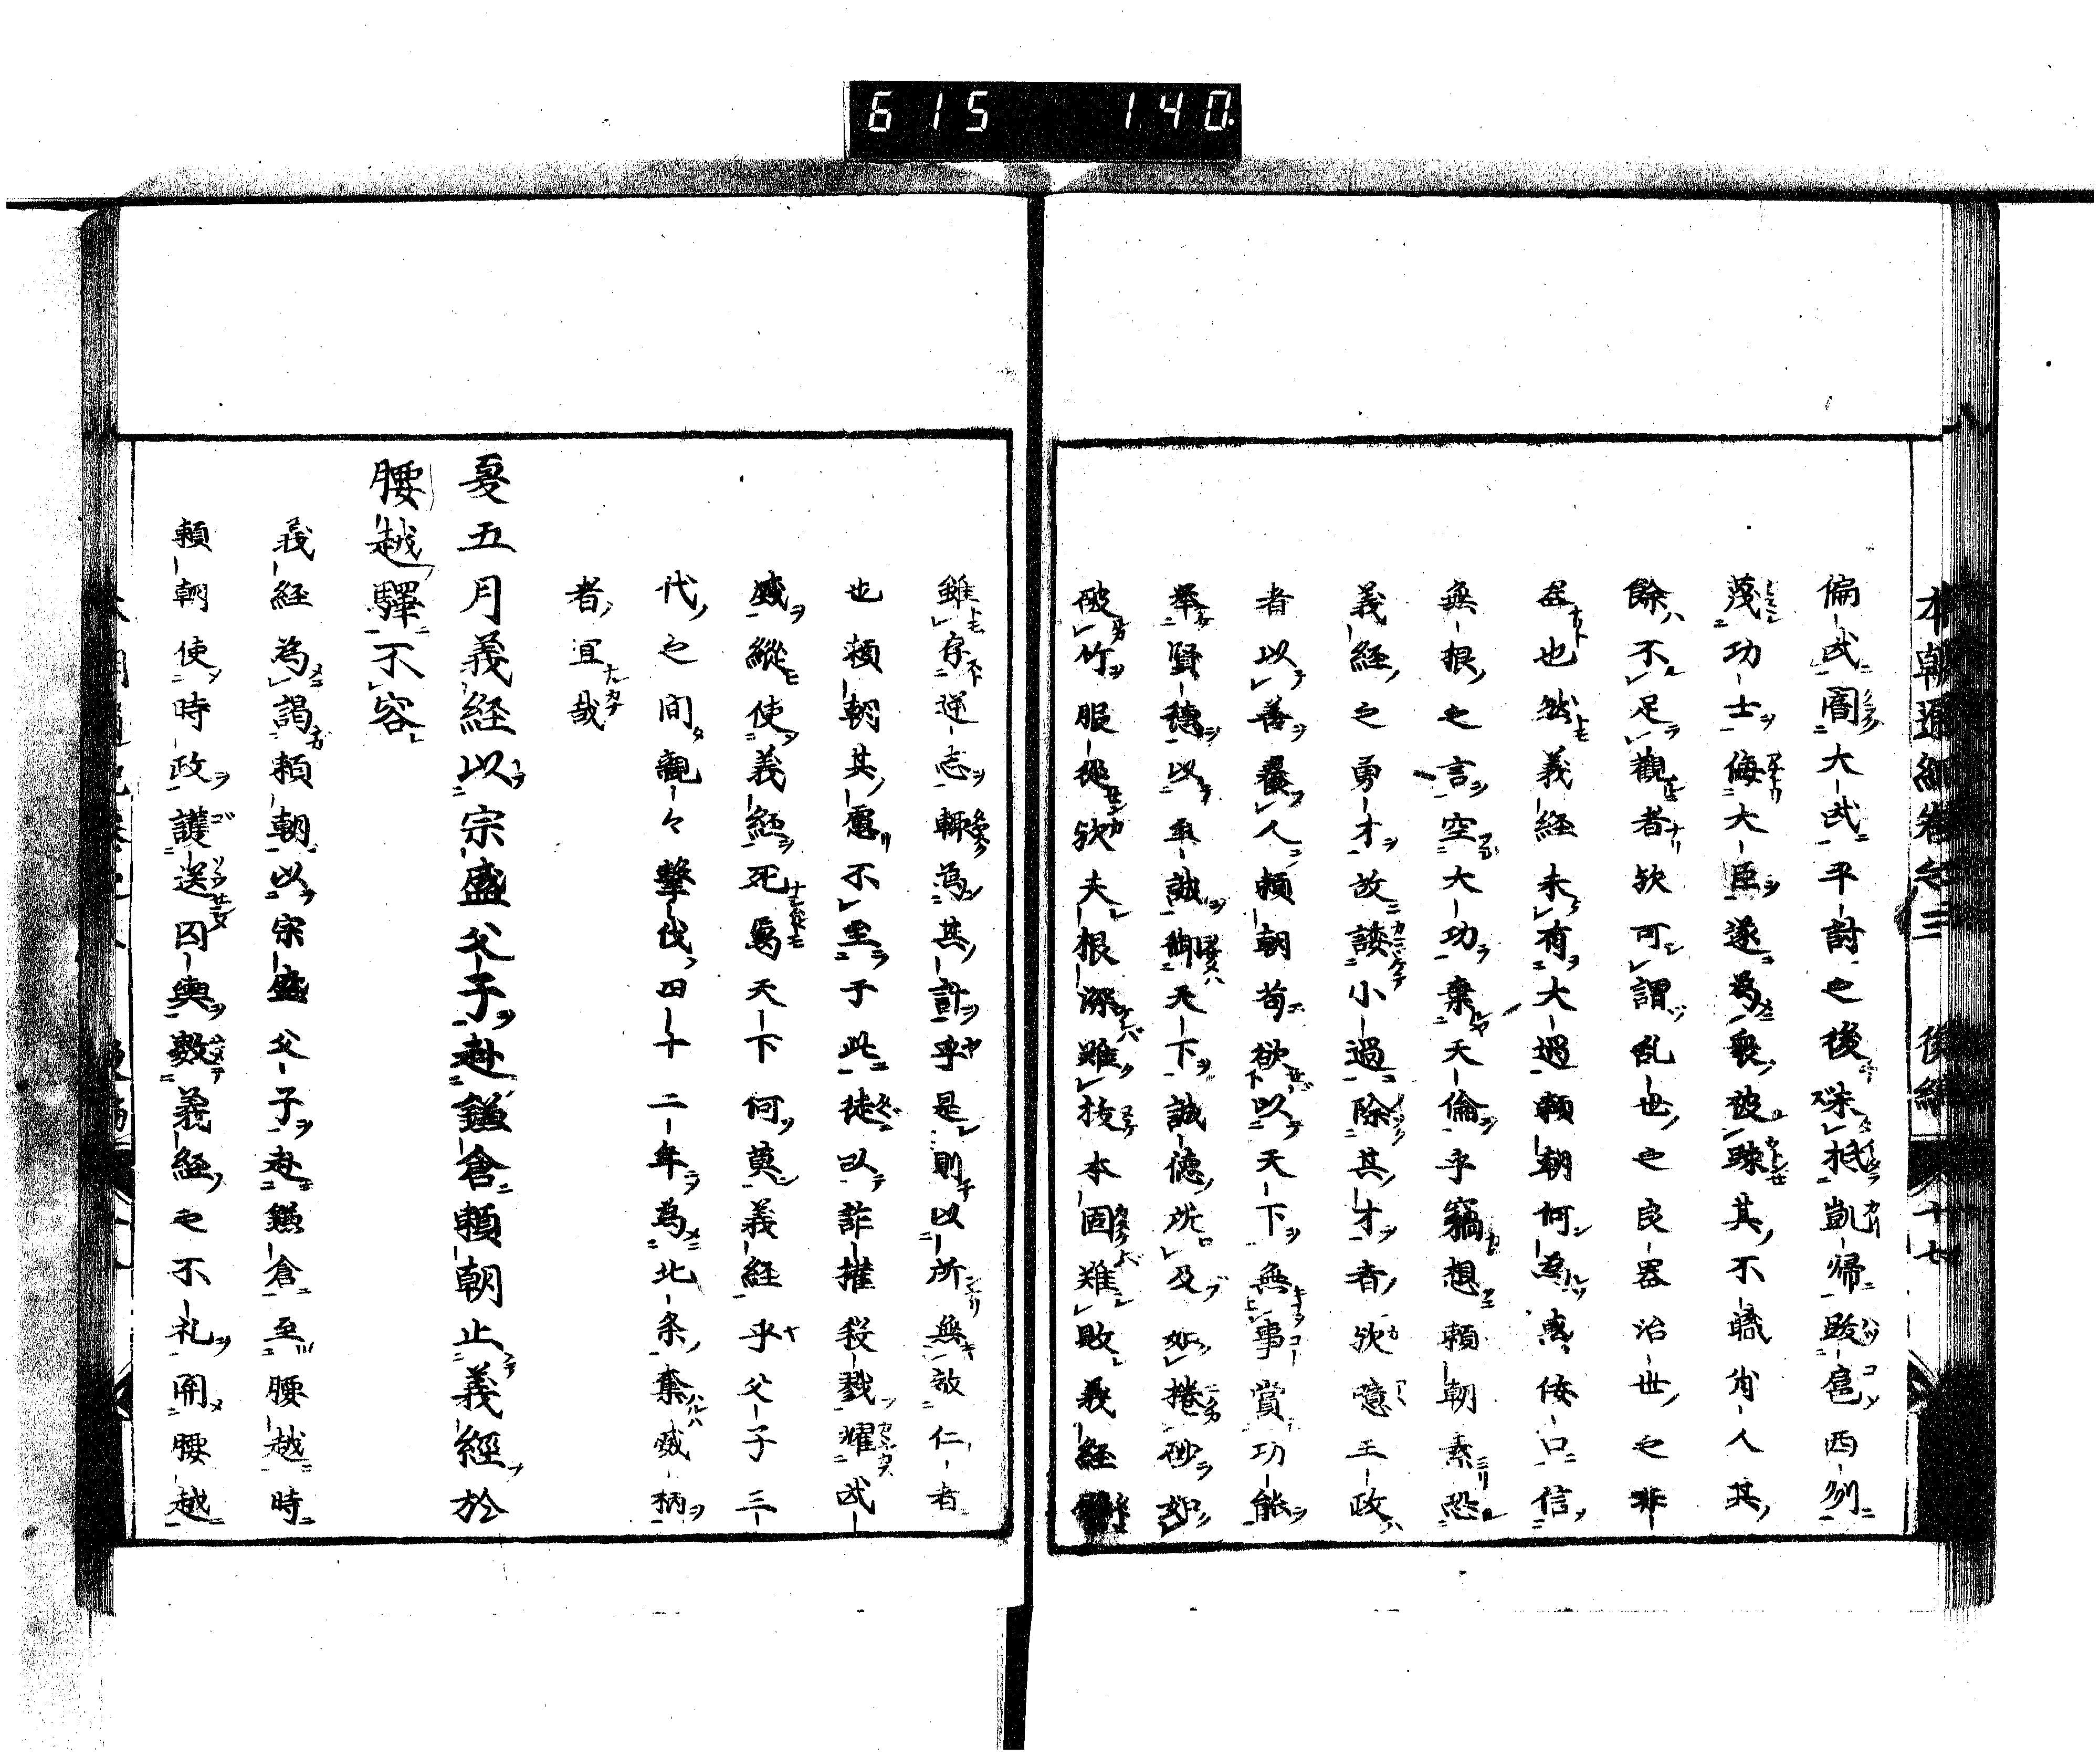 615 140
本朝通紀巻之三 後編 十七
偏武闇大武平討之後未抵凱帰跋扈西列
蔑功士侮大臣遂為衆被疎其不職肖人其
餘不足観者欤可謂乱世之良器治世之非
器也然義経未有大過頼朝何為惑佞口信
無根之言空大功棄天倫乎竊想頼朝素恐
義経之勇才故諉小過除其才者欤噫王政
者以善養人頼朝苟欲以天下無事賞功能
挙賢徳以至誠御天下誠徳所及如捲砂如
破竹服従欤夫根深難抜本固難敗義経
雖存逆志輙為其計乎是則以所無敵仁者
也頼朝其慮不至于此徒以詐権殺戮燿武
威縦使義経死焉天下何莫義経乎父子三
代之間親々撃伐四十二年為北条棄威柄
者宜哉
夏五月義経以宗盛父子赴鎌倉頼朝止義經於
腰越驛不容
義経為謁頼朝以宗盛父子赴鎌倉至腰越時
頼朝使時政護送囚輿数義経之不礼関腰越